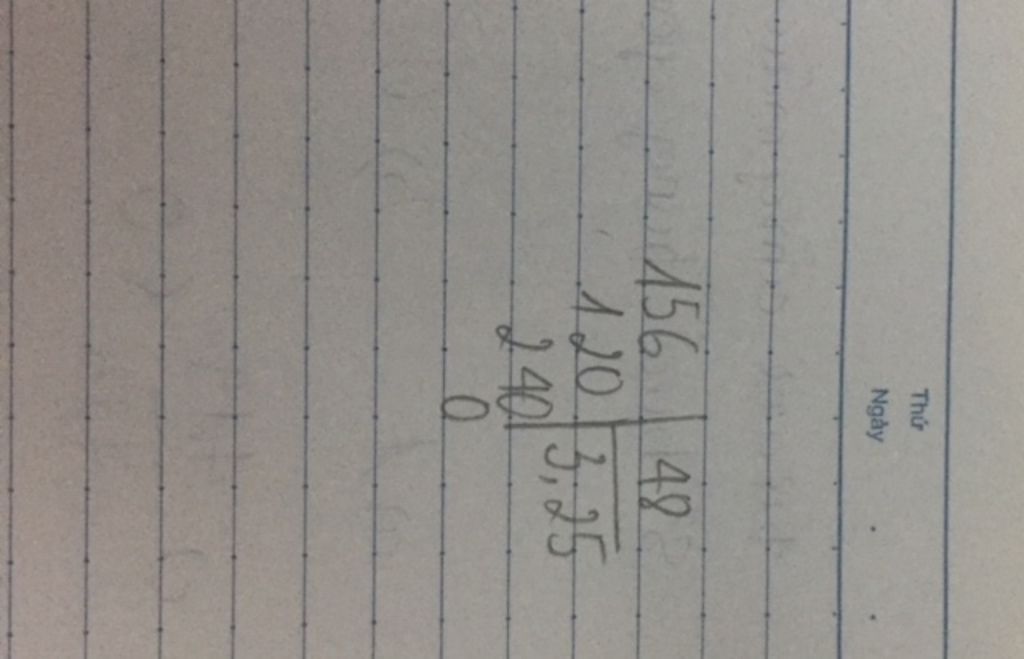 Thứ
Ngày
156 48
120 3,25
240
0